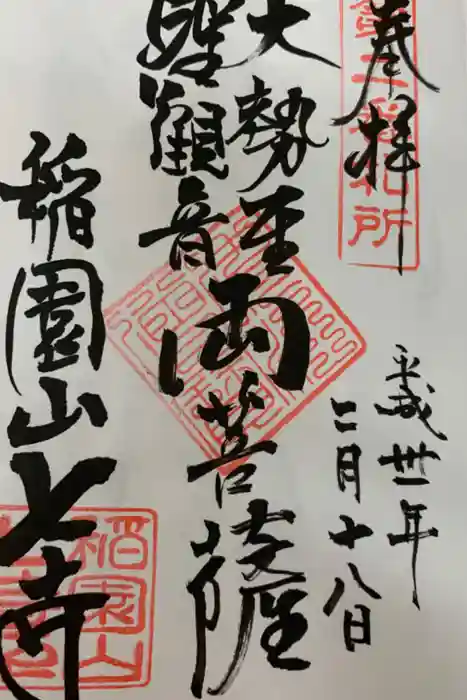 奉拝
平成卅一年
二月十八日
大勢至
聖観音
両菩薩
稲園山七寺
稲園山